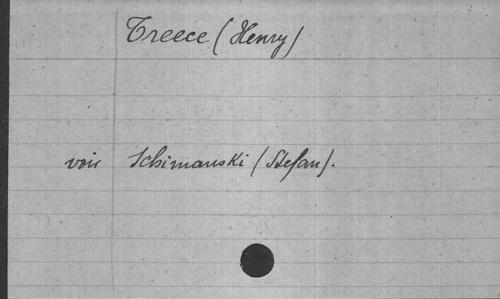 Treece (Henry)
voir Schimanski (Stefan).